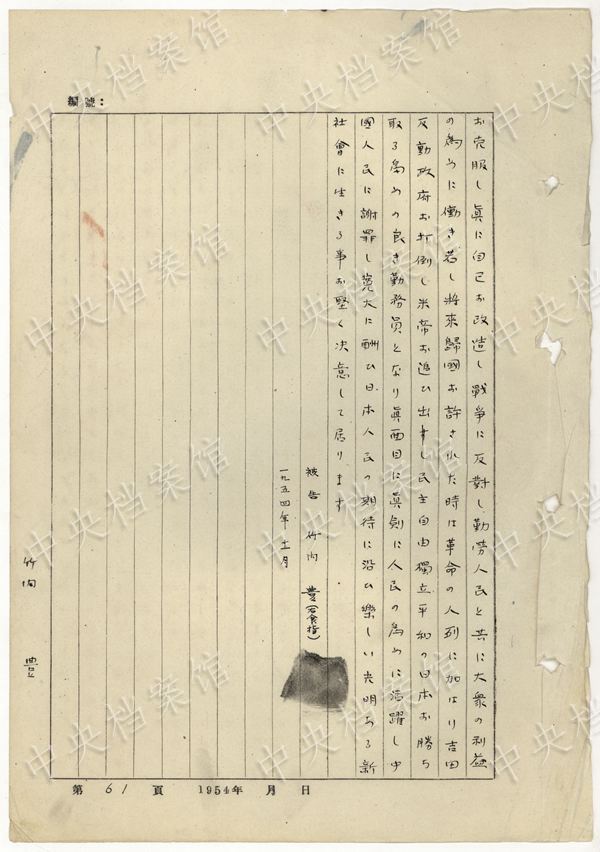 編號：
お克服し眞に自己お改造し戰爭に反對し勤勞人民と共に大衆の利益
の爲めに働き若し將來歸國お許された時は革命の人列に加はり吉田
反動政府お打倒し米帝お追ひ出し民主自由獨立平和の日本お勝ち
取る爲めの良き勤務員となり眞面目に眞剣に人民の爲めに活躍し中
國人民に謝罪し寛大に酬ひ日本人民の期待に沿ひ樂しい光明ある新
社會に生きる事お堅く决意して居ります
被告 竹内 豊(右食指)
一九五四年十一月
竹内 豊
第 61 頁 1954年 月 日
中央档案馆